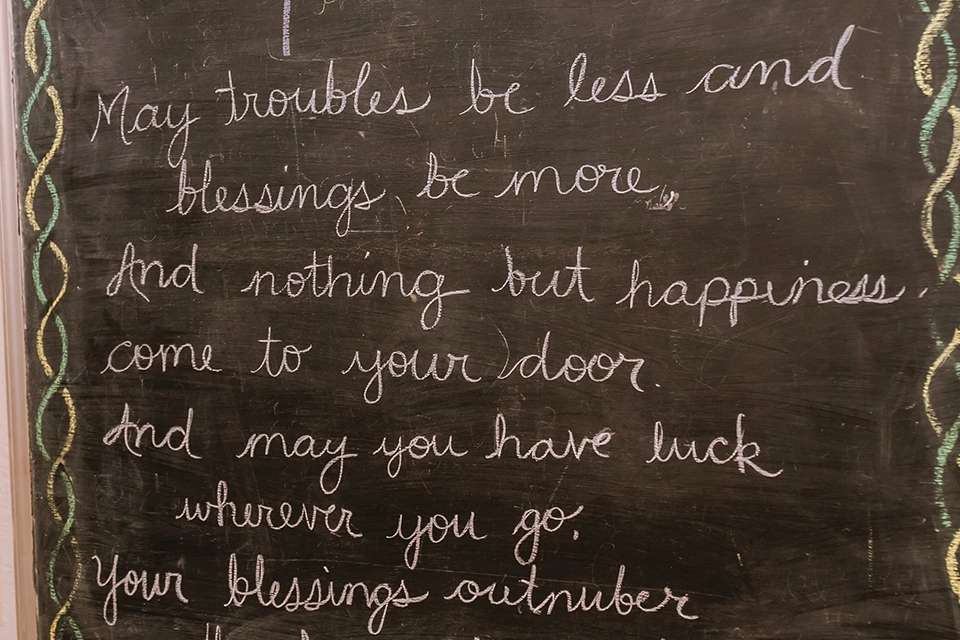 May troubles be less and
blessings be more,
And nothing but happiness
come to your door.
And may you have luck
wherever you go,
Your blessings outnuber